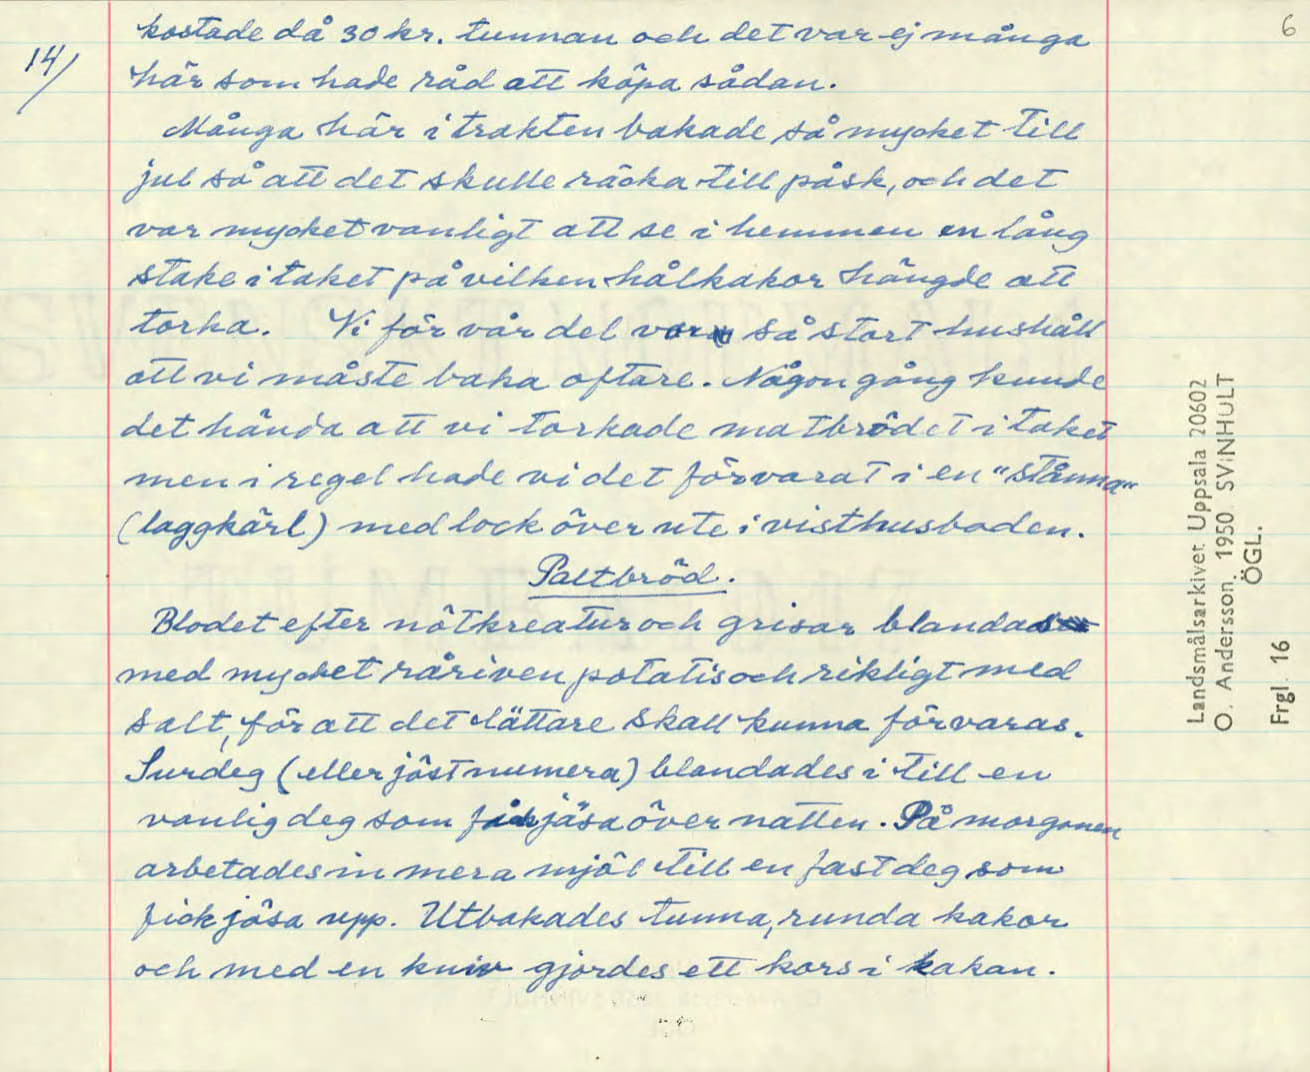 6
14/
kostade då 30 kr. tunnan och det var ej många
här som hade råd att köpa sådan.
Många här i trakten bakade så mycket till
jul så att det skulle räcka till påsk, och det
var mycket vanligt att se i hemmen en lång
stake i taket på vilken hålkakor hängde att
torka. Vi för vår del var så stort hushåll
att vi måste baka oftare. Någon gång kunde
det hända att vi torkade matbrödet i taket
men i regel hade vi det förvarat i en "stånna"
(laggkärl) med lock över ute i visthusboden.
Paltbröd.
Blodet efter nötkreatur och grisar blandades
med mycket råriven potatis och rikligt med
salt, för att det lättare skall kunna förvaras.
Surdeg (eller jäst numera) blandades i till en
vanlig deg som fick jäsa över natten. På morgonen
arbetades in mera mjöl till en fast deg som
fick jäsa upp. Utbakades tunna, runda kakor
och med en kniv gjordes ett kors i kakan.
Landsmålsarkivet Uppsala 20602
O. Andersson. 1950. SVINHULT
ÖGL.
Frgl. 16